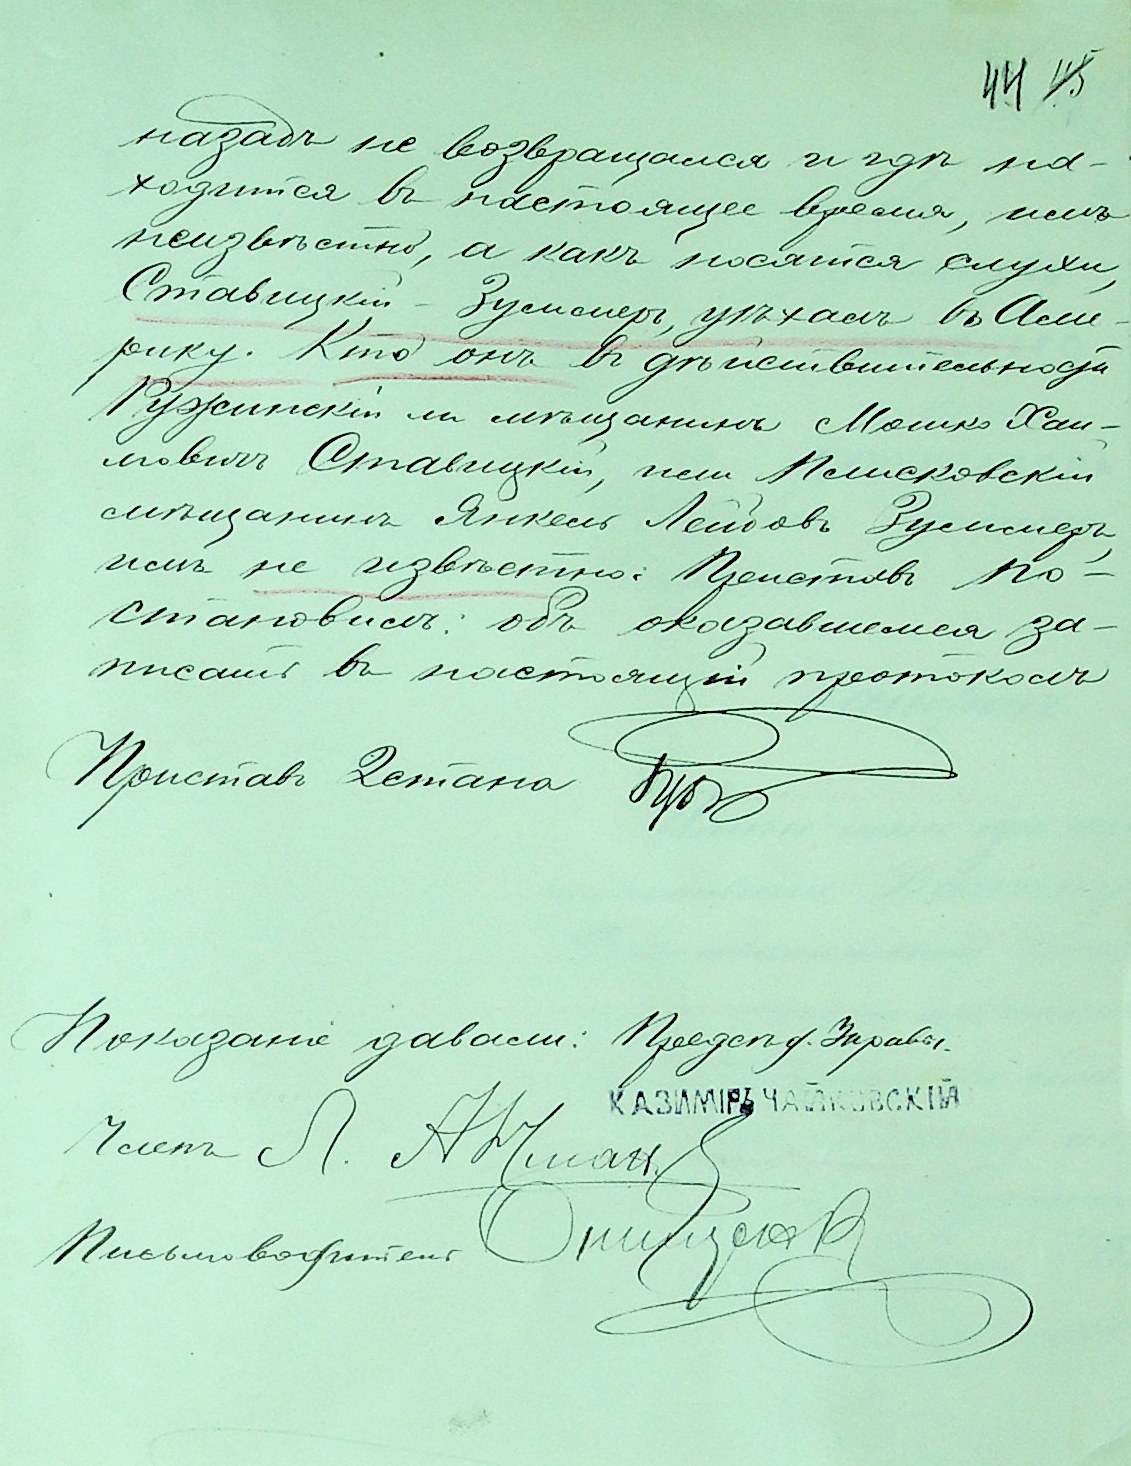 44 45
назадъ не возвращался и гдѣ на-
ходится въ настоящее время, имъ
неизвѣстно, а какъ носятся слухи,
Ставицкій - Зумсмеръ, уѣхалъ въ Аме-
рику. Кто онъ въ дѣйствительности
Ружинскій ли мѣщанинъ Мошко Хаи-
мовичъ Ставицкій, или Плисковскій
мѣщанинъ Янкель Лейбовъ
имъ не извѣстно: Приставъ по-
становилъ: объ оказавшемся за-
писать въ настоящій протоколъ
Приставъ 2 стана
Показаніе давали:
КАЗИМІРЪ ЧАЙКОВСКІЙ
Членъ Л.
Письмоводитель